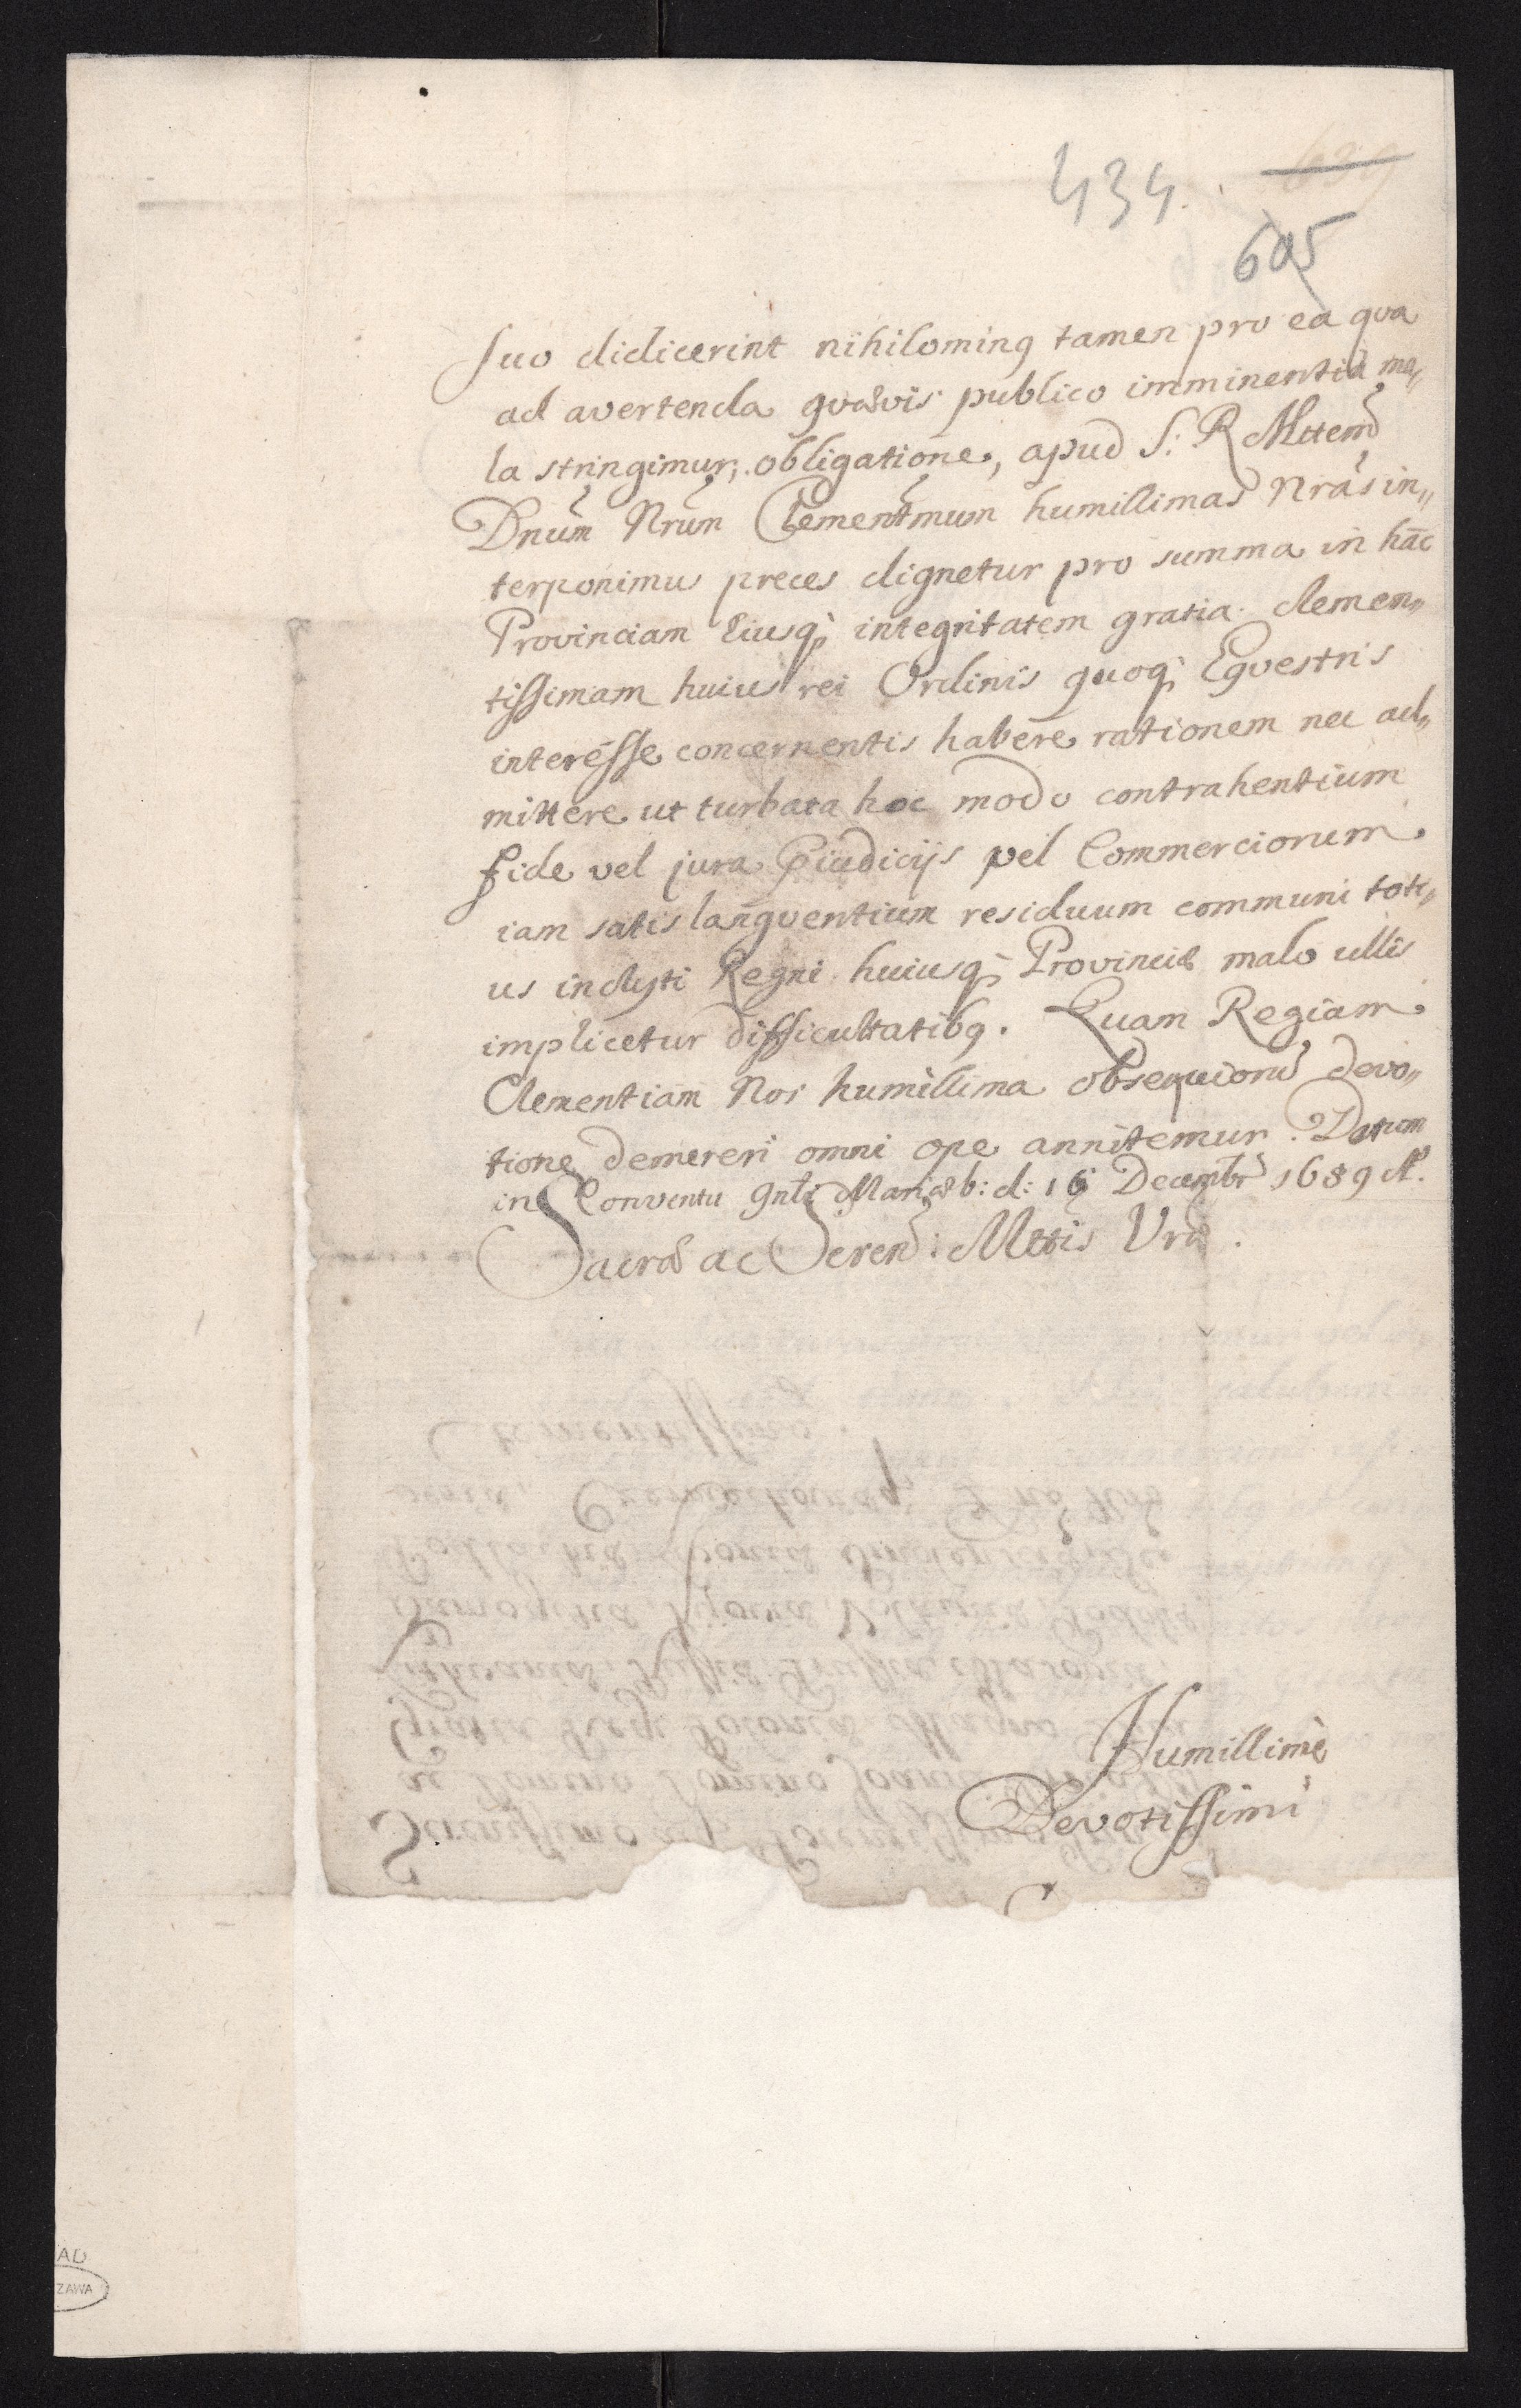 434.
639
605
suo didicerint nihilominq tamen pro ea qua
ad avertenda quævis publico imminentia ma„
la stringimur, obligatione, apud S: R Mttem
Dnum Nrum Clementmum humillimas Nras in„
terponimus preces dignetur pro summa in hac
Provinciam Eiusq; integritatem gratia clemen„
tissimam huius rei Ordinis quoq; Equestris
interesse concernentis habere rationem nec ad„
mittere ut turbata hoc modo contrahentium
fide vel jura Pjudicijs vel Commerciorum
iam satis langventium residuum communi toti„
us inclyti Regni huiusq; Provinciæ malo ullis
implicetur difficultatibq. Quam Regiam
Clementiam Nos humillima obsequiorū devo„
tione demereri omni ope annitemur. Datum
in Conventu gnli Mariæb: d: 16 Decembr 1689 A.
Sacræ ac Seren: Mttis Vræ.
Humillimè
Devotissimi
AD
ZAWA